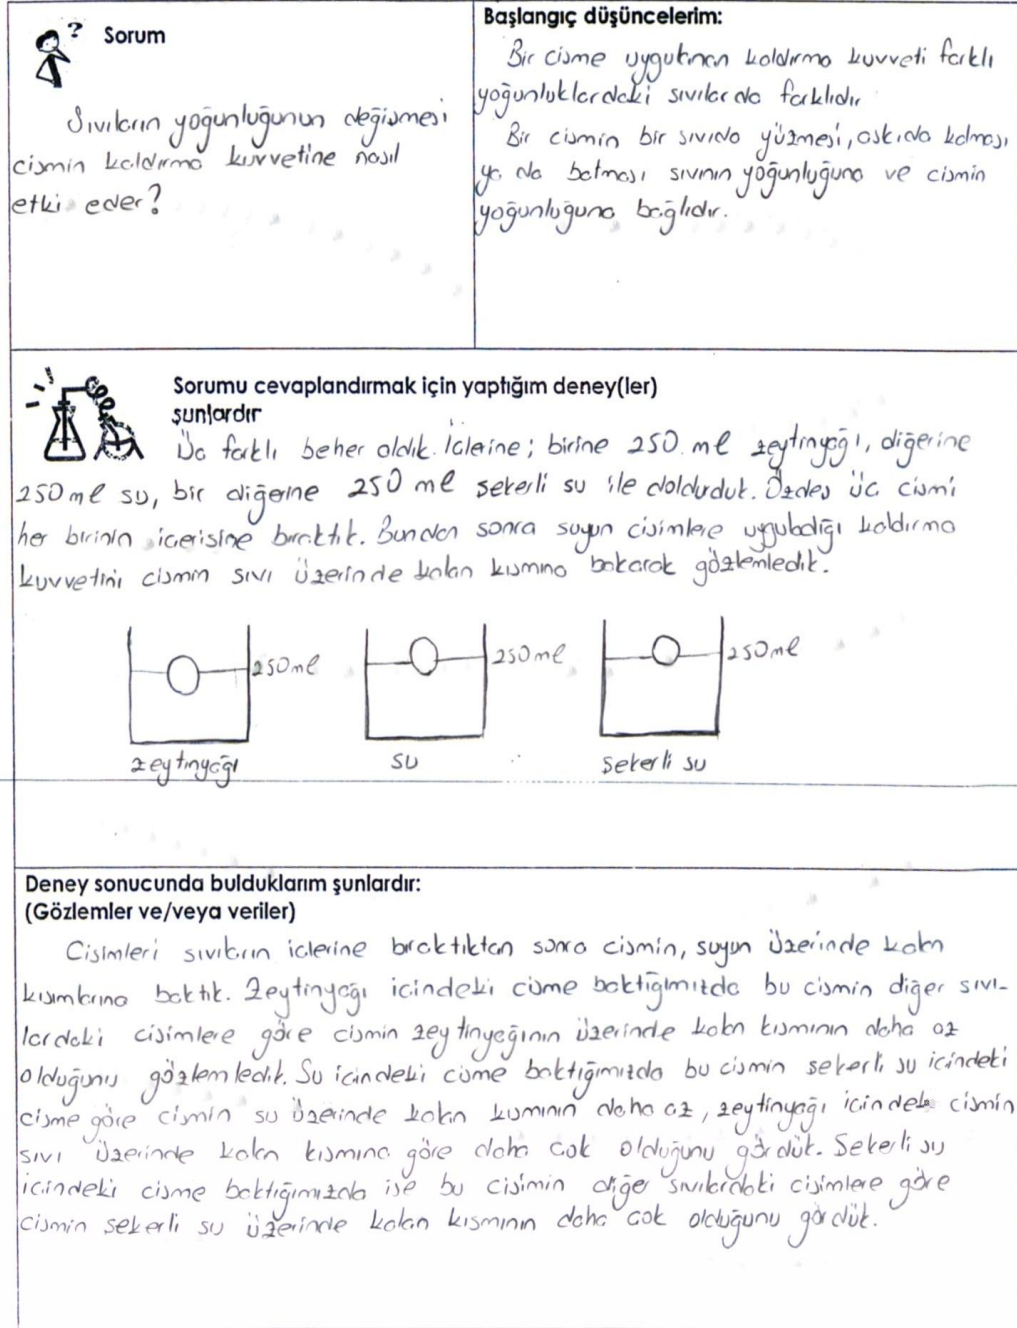 ? Sorum
Sıvıların yoğunluğunun değişmesi
cismin kaldırma kuvvetine nasıl
etki eder?
Başlangıç düşüncelerim:
Bir cisme uygulanan kaldırma kuvveti farklı
yoğunluklardaki sıvılarda farklıdır
Bir cismin bir sıvıda yüzmesi, askıda kalması
ya da batması sıvının yoğunluğuna ve cismin
yoğunluğuna bağlıdır.
Sorumu cevaplandırmak için yaptığım deney(ler)
şunlardır
Üç farklı beher aldık. İçlerine; birine 250 ml zeytinyağı, diğerine
250 ml su, bir diğerine 250 ml şekerli su ile doldurduk. Özdeş üç cismi
her birinin içerisine bıraktık. Bundan sonra suyun cisimlere uyguladığı kaldırma
kuvvetini cismin sıvı üzerinde kalan kısmına bakarak gözlemledik.
250ml 250ml 250ml
zeytinyağı su şekerli su
Deney sonucunda bulduklarım şunlardır:
(Gözlemler ve/veya veriler)
Cisimleri sıvıların içlerine bıraktıktan sonra cismin, suyun üzerinde kalan
kısımlarına baktık. Zeytinyağı içindeki cisme baktığımızda bu cismin diğer sıvı-
lardaki cisimlere göre cismin zeytinyeğının üzerinde kalan kısmının daha az
olduğunu gözlemledik. Su içindeki cisme baktığımızda bu cismin şekerli su içindeki
cisme göre cismin su üzerinde kalan kısmının daha az, zeytinyağı içindeki cismin
sıvı üzerinde kalan kısmına göre daha çok olduğunu gördük. Şekerli su
içindeki cisme baktığımızda ise bu cisimin diğer sıvılardaki cisimlere göre
cismin şekerli su üzerinde kalan kısmının daha çok olduğunu gördük.